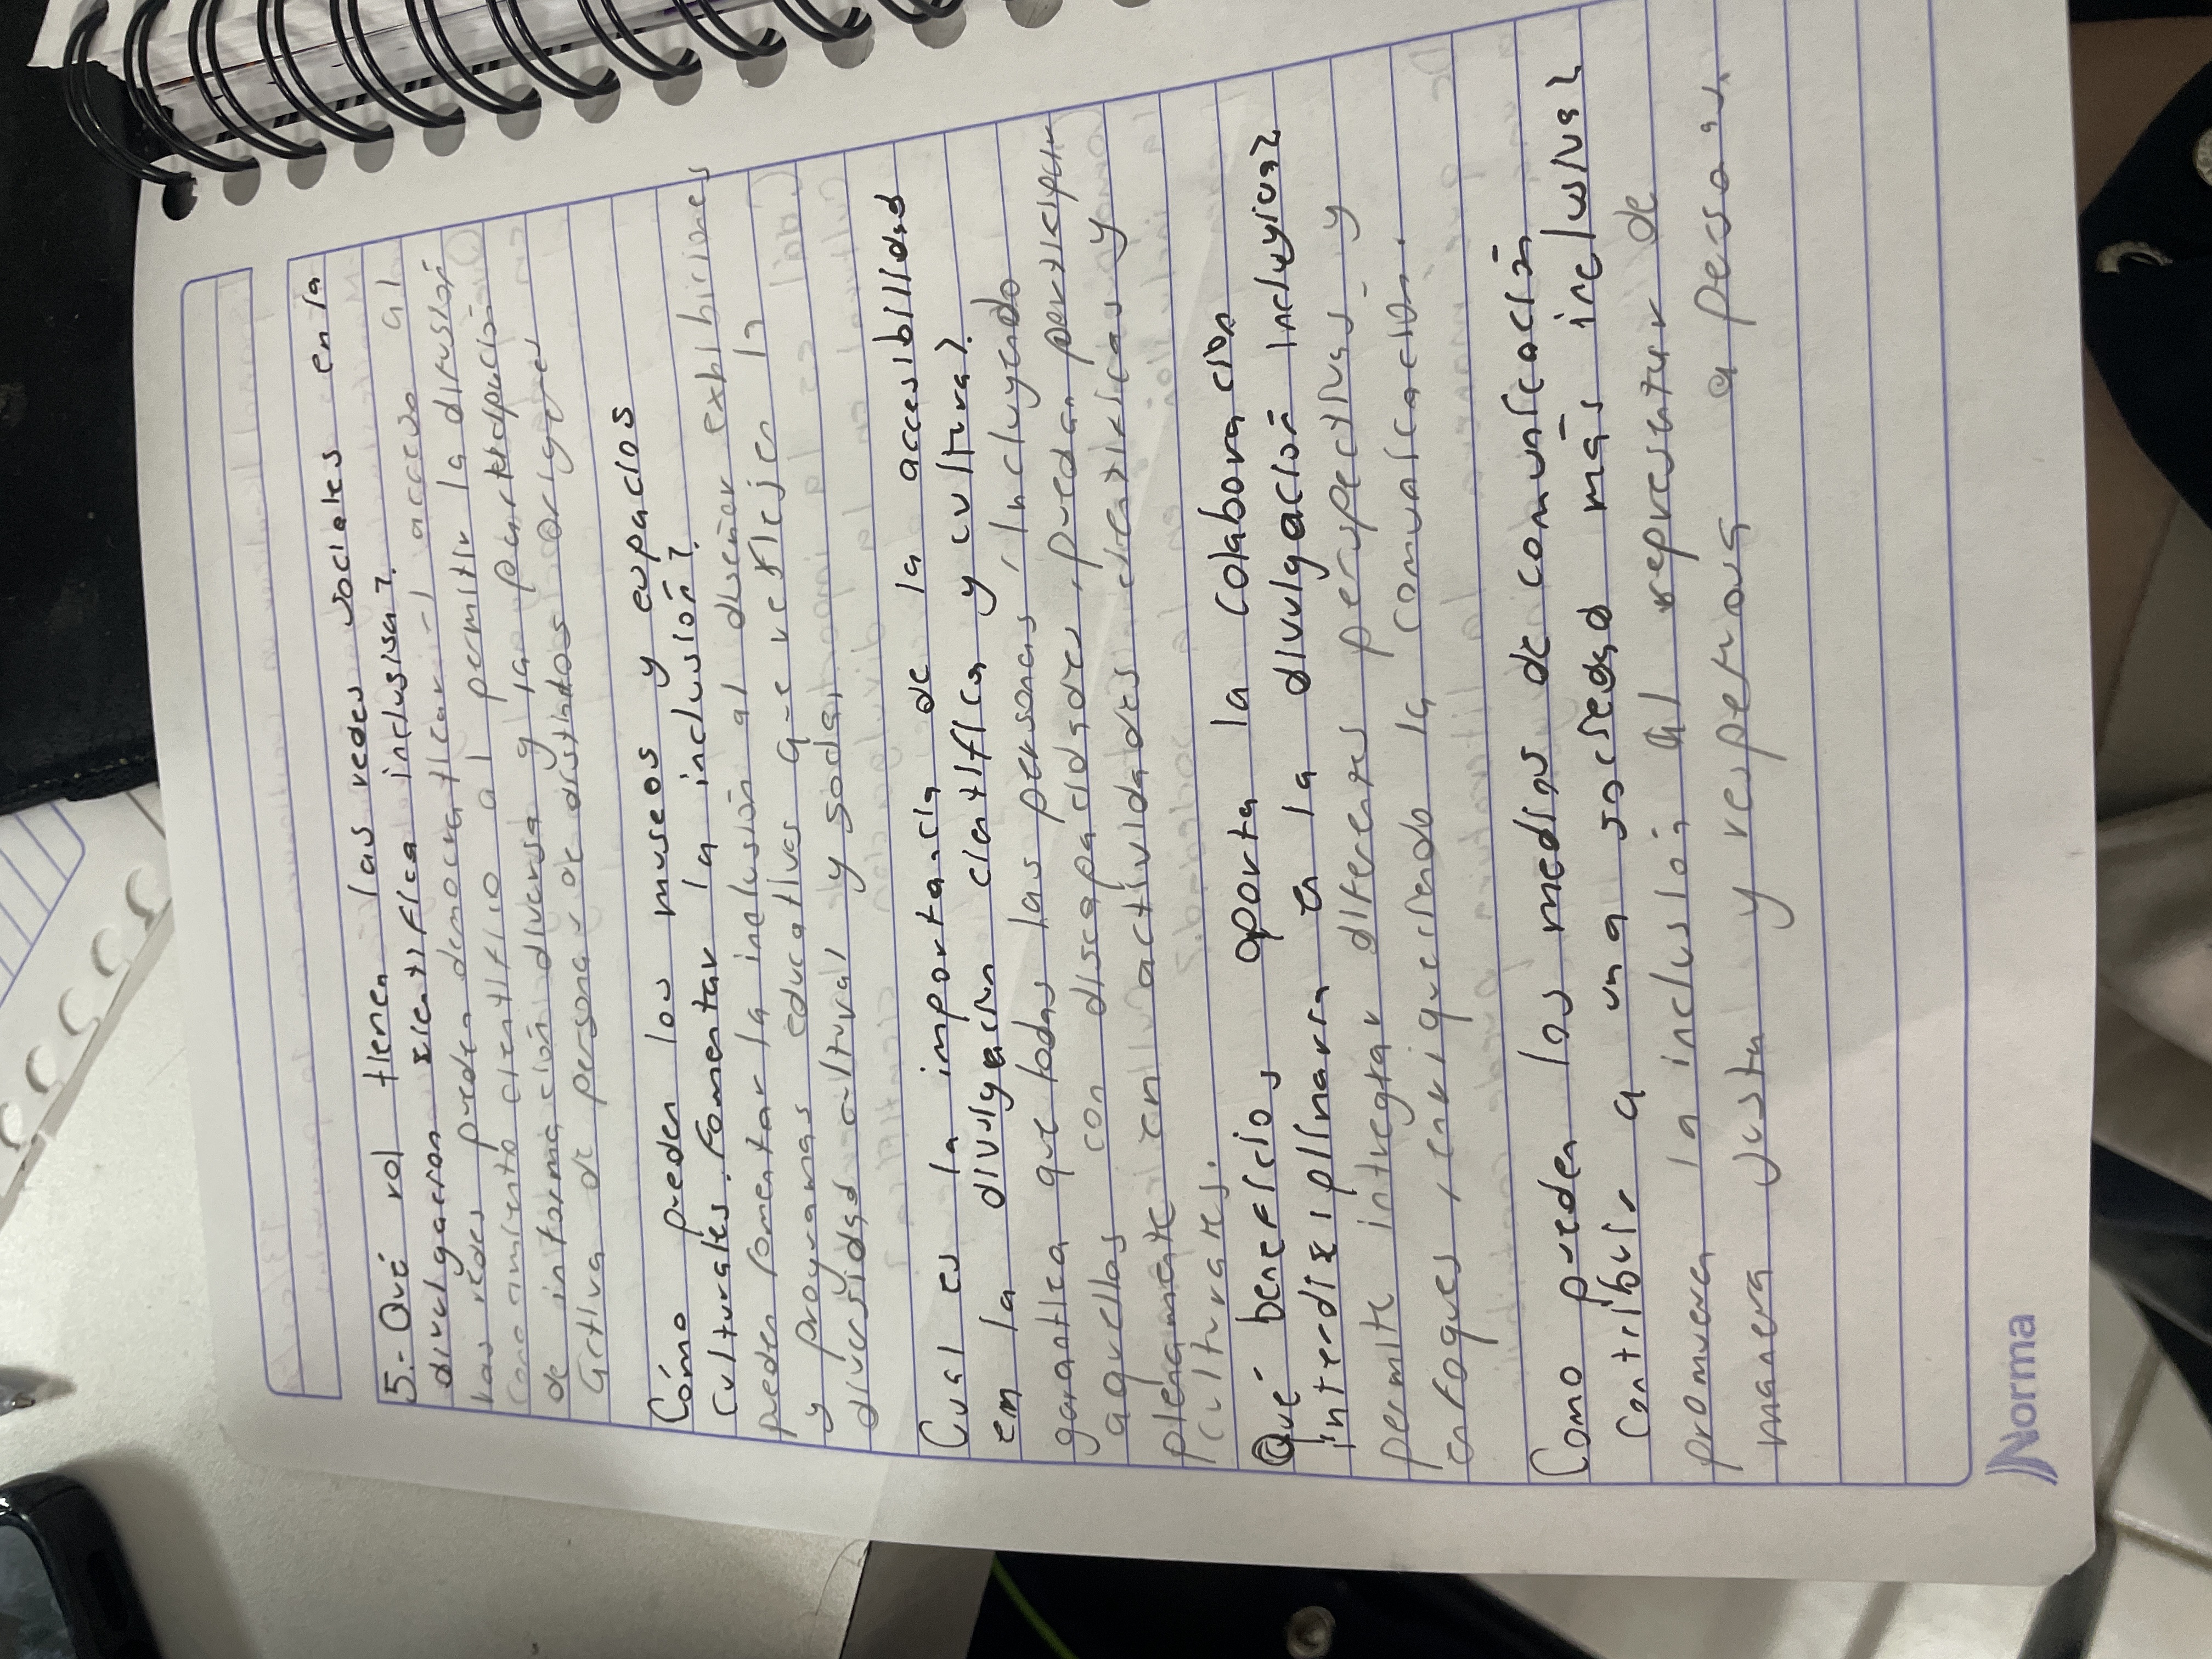 5.- Qué rol tienen las redes sociales en la
divulgacion cientifica inclusiva?
Las redes pueden democratizar el acceso al
conocimiento cientifico al permitir la difusión
de información diversa y la participación
activa de personas de distintos origenes
Cómo pueden los museos y espacios
culturales fomentar la inclusión?
pueden fomentar la inclusión al diseñar exhibiciones
y programas educativos que reflejen la
diversidad cultural y social.
Cual es la importancia de la accesibilidad
em la divulgación cientifica y cultura?
garantiza que todas las personas, incluyendo
aquellas con discapacidades, puedan participar
plenamente en actividades cientificas y
culturales.
Qué beneficios aporta la colaboracion
interdisiplinaria en la divulgación incluyiva?
permite integrar diferentes perspectivas y
enfoques, enriqueciendo la comunicación.
Como pueden los medios de comunicación
contribuir a una sociedad más inclusiva?
promueven la inclusión al representar de
manera justa y respetuosa a personas.
Norma